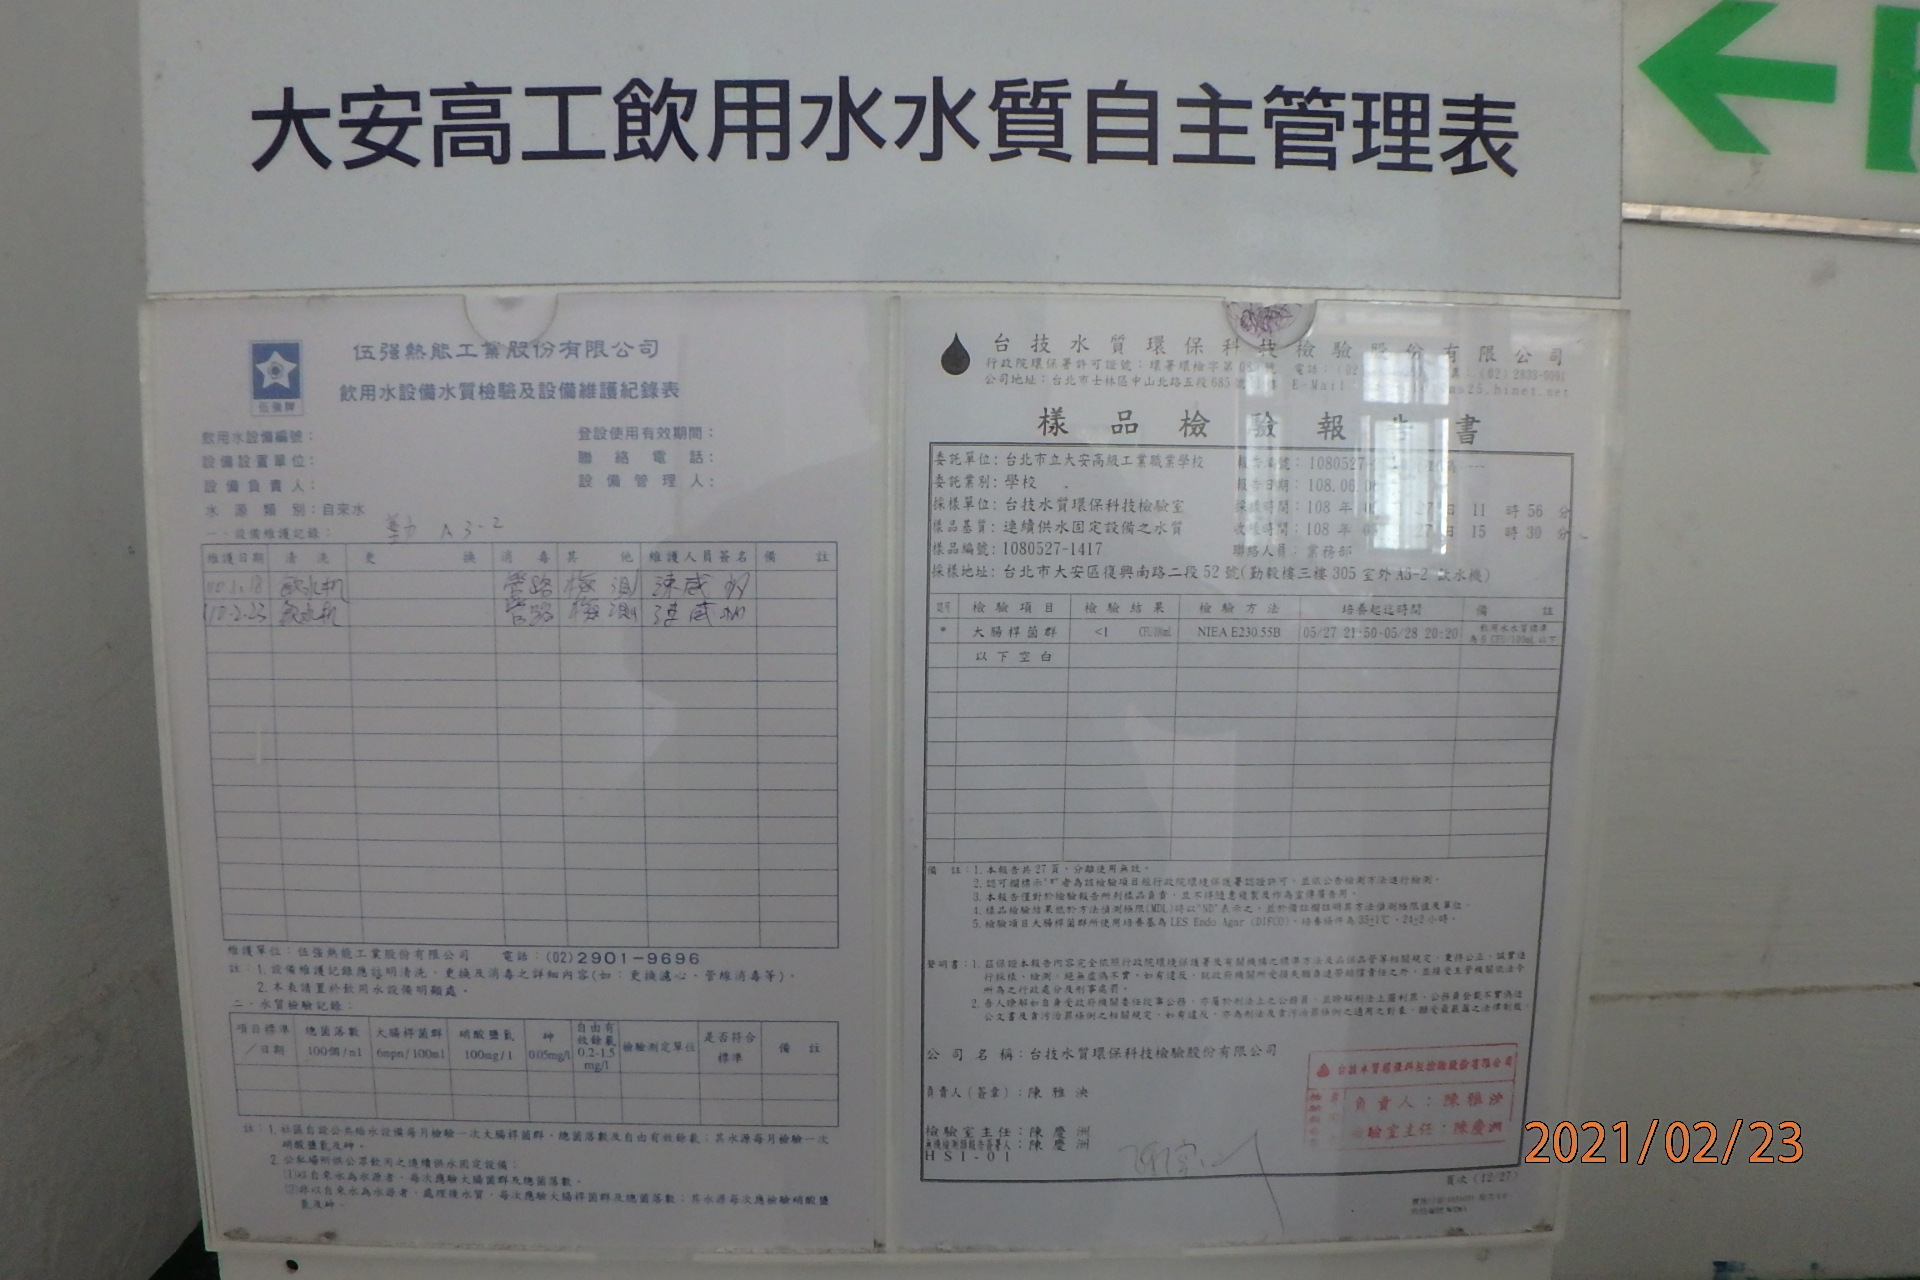 大安高工飲用水水質自主管理表
伍強熱能工業股份有限公司
飲用水設備水質檢驗及設備維護紀錄表
伍強牌
飲用水設備編號：
設備設置單位：
設備負責人：
水源類別：自來水
登設使用有效期間：
聯絡電話：
設備管理人：
一、設備維護記錄：
勤 A3-2
維護日期 清洗 更換 消毒 其他 維護人員簽名 備註
飲水机 管路 檢測 陳威
110-2-23 飲水机 管路 檢測 陳威
維護單位：伍強熱能工業股份有限公司 電話：(02)2901-9696
註：1.設備維護記錄應註明清洗、更換及消毒之詳細內容(如：更換濾心、管線消毒等)。
2.本表請置於飲用水設備明顯處。
二、水質檢驗記錄：
項目標準／日期 總菌落數 100個/ml 大腸桿菌群 6mpn/100ml 硝酸鹽氮 100mg/l 砷 0.05mg/l 自由有效餘氯 0.2-1.5 mg/l 檢驗測定單位 是否符合標準 備註
註：1.社區自設公共給水設備每月檢驗一次大腸桿菌群、總菌落數及自由有效餘氯；其水源每月檢驗一次
硝酸鹽氮及砷。
2.公私場所供公眾飲用之連續供水固定設備：
(1)以自來水為水源者，每次應驗大腸菌群及總菌落數。
(2)非以自來水為水源者，處理後水質，每次應驗大腸桿菌群及總菌落數；其水源每次應檢驗硝酸鹽
氮及砷。
台技水質環保科技檢驗股份有限公司
行政院環保署許可證號：環署環檢字第 號 電話：(02
公司地址：台北市士林區中山北路五段685號 E-Mail
樣品檢驗報告書
委託單位：台北市立大安高級工業職業學校 報告編號：1080527
委託業別：學校 報告日期：108.06
採樣單位：台技水質環保科技檢驗室 採樣時間：108 年 27 日 11 時 56 分
樣品基質：連續供水固定設備之水質 收樣時間：108 年 27 日 15 時 30 分
樣品編號：1080527-1417 聯絡人員：業務部
採樣地址：台北市大安區復興南路二段52號(勤毅樓三樓305室外A3-2飲水機)
檢驗項目 檢驗結果 檢驗方法 培養起迄時間 備註
* 大腸桿菌群 <1 CFU/100mL NIEA E230.55B 05/27 21:50-05/28 20:20 飲用水水質標準為6 CFU/100mL以下
以下空白
備註：1.本報告共27頁，分離使用無效。
2.認可欄標示"*"者為該檢驗項目經行政院環境保護署認證許可，並依公告檢測方法進行檢測。
3.本報告僅對於檢驗報告所列樣品負責，並不得隨意複製及作為宣傳廣告用。
4.樣品檢驗結果低於方法偵測極限(MDL)時以"ND"表示之，並於備註欄註明其方法偵測極限值及單位。
5.檢驗項目大腸桿菌群所使用培養基為LES Endo Agar (DIFCO)，培養條件為35±1℃、24±2小時。
聲明書：1.茲保證本報告內容完全依照行政院環境保護署及有關機構之標準方法及品保品管等相關規定，秉持公正、誠實進
行採樣、檢測，絕無虛偽不實，如有違反，就政府機關所受損失願負連帶賠償責任之外，並接受主管機關依法令
所為之行政處分及刑事處罰。
2.吾人瞭解如自身受政府機關委任從事公務，亦屬於刑法上之公務員，並瞭解刑法上圖利罪、公務員登載不實偽造
公文書及貪污治罪條例之相關規定，如有違反，亦為刑法及貪污治罪條例之適用之對象，願受最嚴厲之法律制裁。
公司名稱：台技水質環保科技檢驗股份有限公司
負責人(簽章)：陳雅泱
檢驗室主任：陳慶洲
無機檢測類報告簽署人：陳慶洲
HSI-01
台技水質環保科技檢驗股份有限公司
負責人：陳雅泱
檢驗室主任：陳慶洲
頁次 (12/27)
2021/02/23